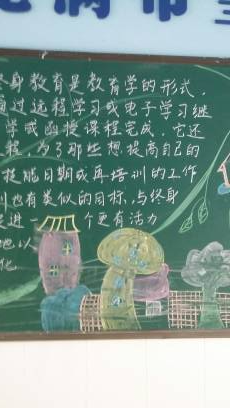 身教育是教育学的形式,
通过远程学习或电子学习继
学或函授课程完成,它还
程,为了那些想提高自己的
技能日期或再培训的工作
训也有类似的目标,与终身
促进一 个更有活力
地以
化